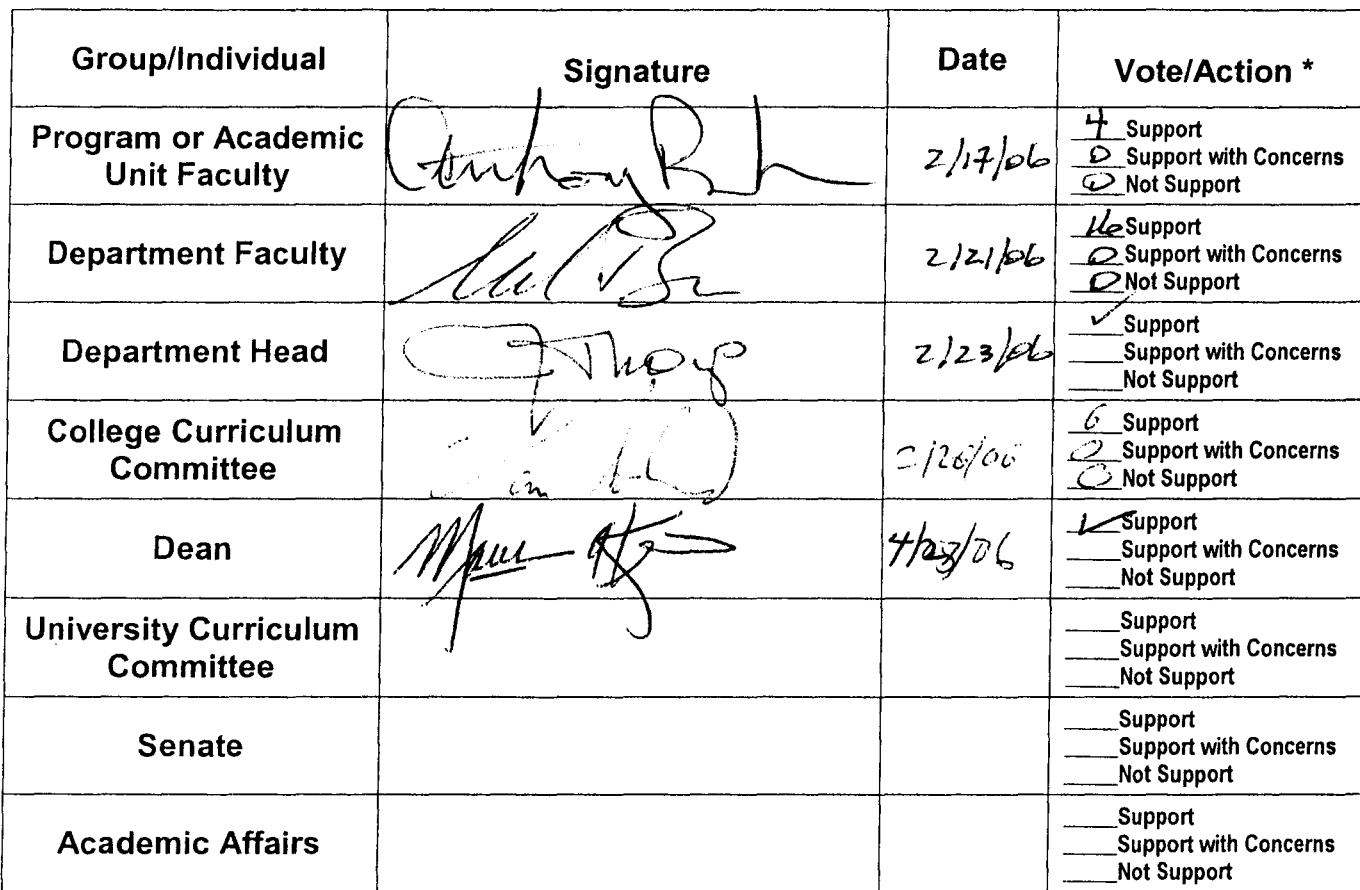 Group/Individual Signature Date Vote/Action *
Program or Academic
Unit Faculty
Anthony
2/17/06
4 Support
0 Support with Concerns
0 Not Support
Department Faculty
2/21/06
Support
0 Support with Concerns
0 Not Support
Department Head
2/23/06
✓ Support
Support with Concerns
Not Support
College Curriculum
Committee
6 Support
0 Support with Concerns
0 Not Support
Dean
✓ Support
Support with Concerns
Not Support
University Curriculum
Committee
Support
Support with Concerns
Not Support
Senate
Support
Support with Concerns
Not Support
Academic Affairs
Support
Support with Concerns
Not Support